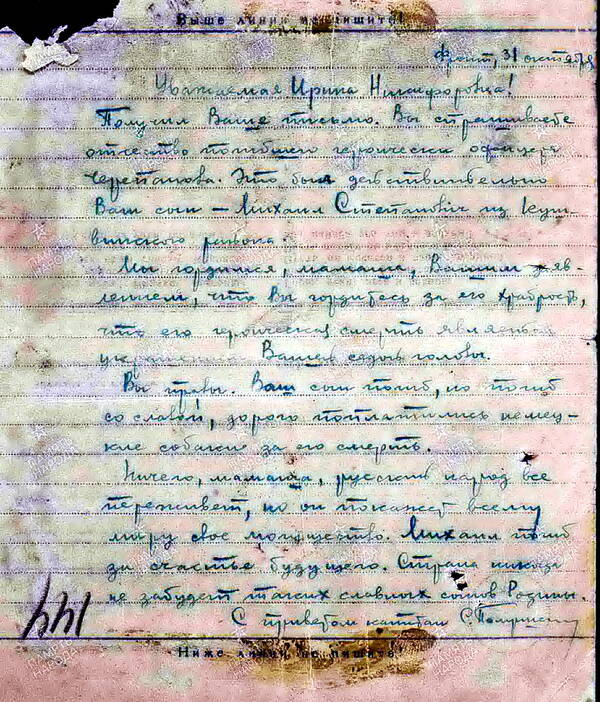 Выше линии не пишите!
Фронт, 31 октября
Уважаемая Ирина Никифоровна!
Получил Ваше письмо. Вы спрашиваете
отчество погибшего геройски офицера
Черепанова. Это был действительно
Ваш сын – Михаил Степанович из Куш-
винского района.
Мы гордимся, мамаша, Вашим заяв-
лением, что Вы гордитесь за его храбрость,
что его героическая смерть является
украшением Вашей седой головы.
Вы правы. Ваш сын погиб, но погиб
со славой, дорого поплатились немец-
кие собаки за его смерть.
Ничего, мамаша, русский народ все
переживет, но он покажет всему
миру свое могущество. Михаил погиб
за счастье будущего. Страна никогда
не забудет таких славных сынов Родины.
С приветом капитан С.
144
Ниже линии не пишите